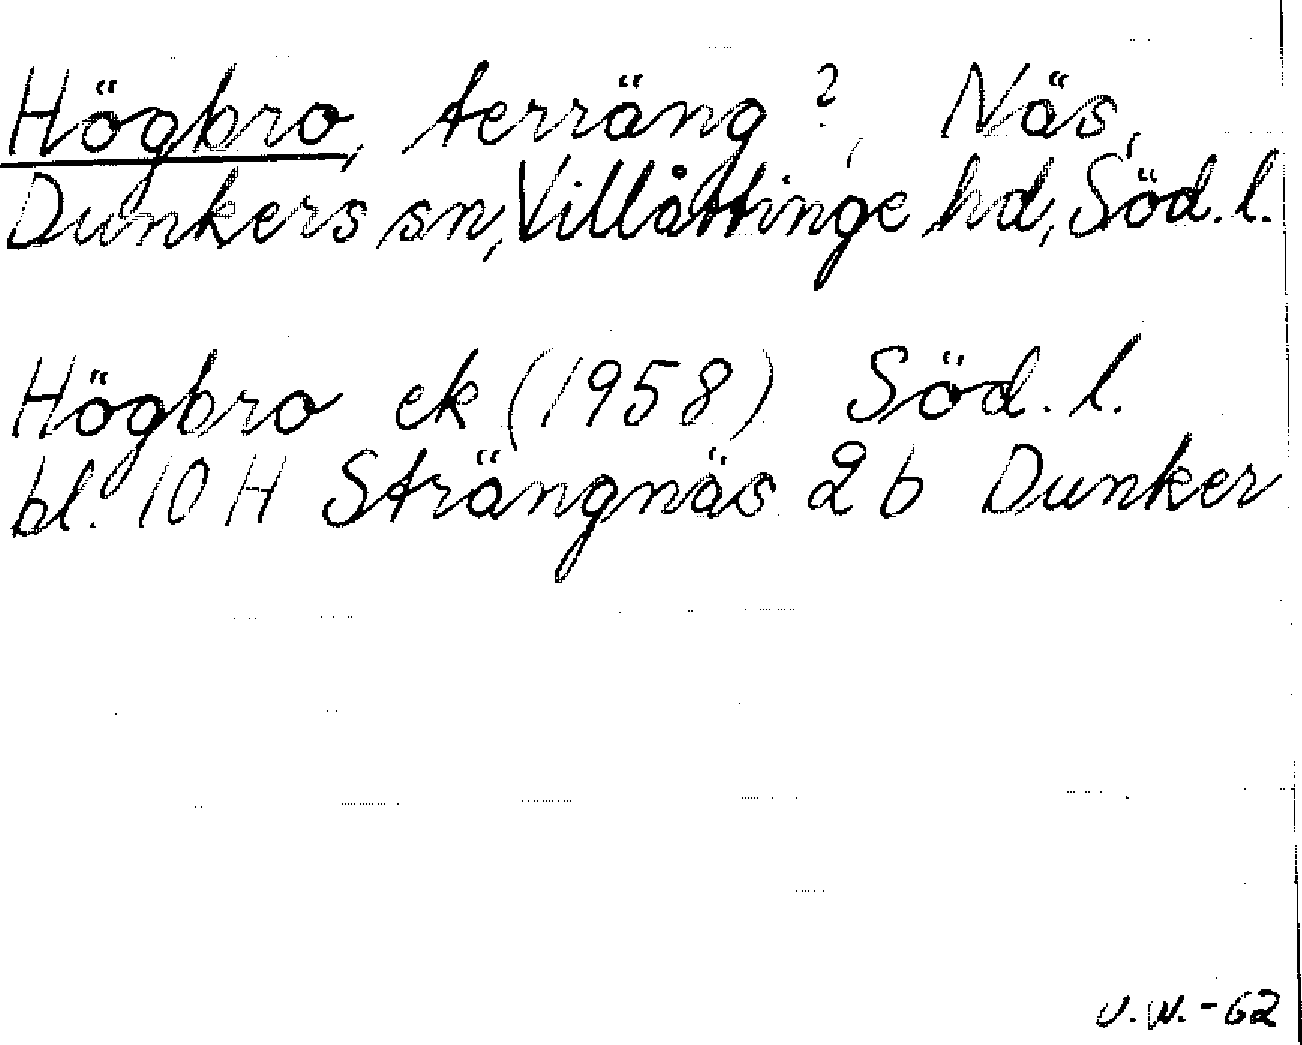 Högbro, terräng?, Näs,
Dunkers sn, Villåttinge hd, Söd. l.
Högbro ek (1958) Söd. l.
bl. 10 H Strängnäs 2 b Dunker
U.W.-62